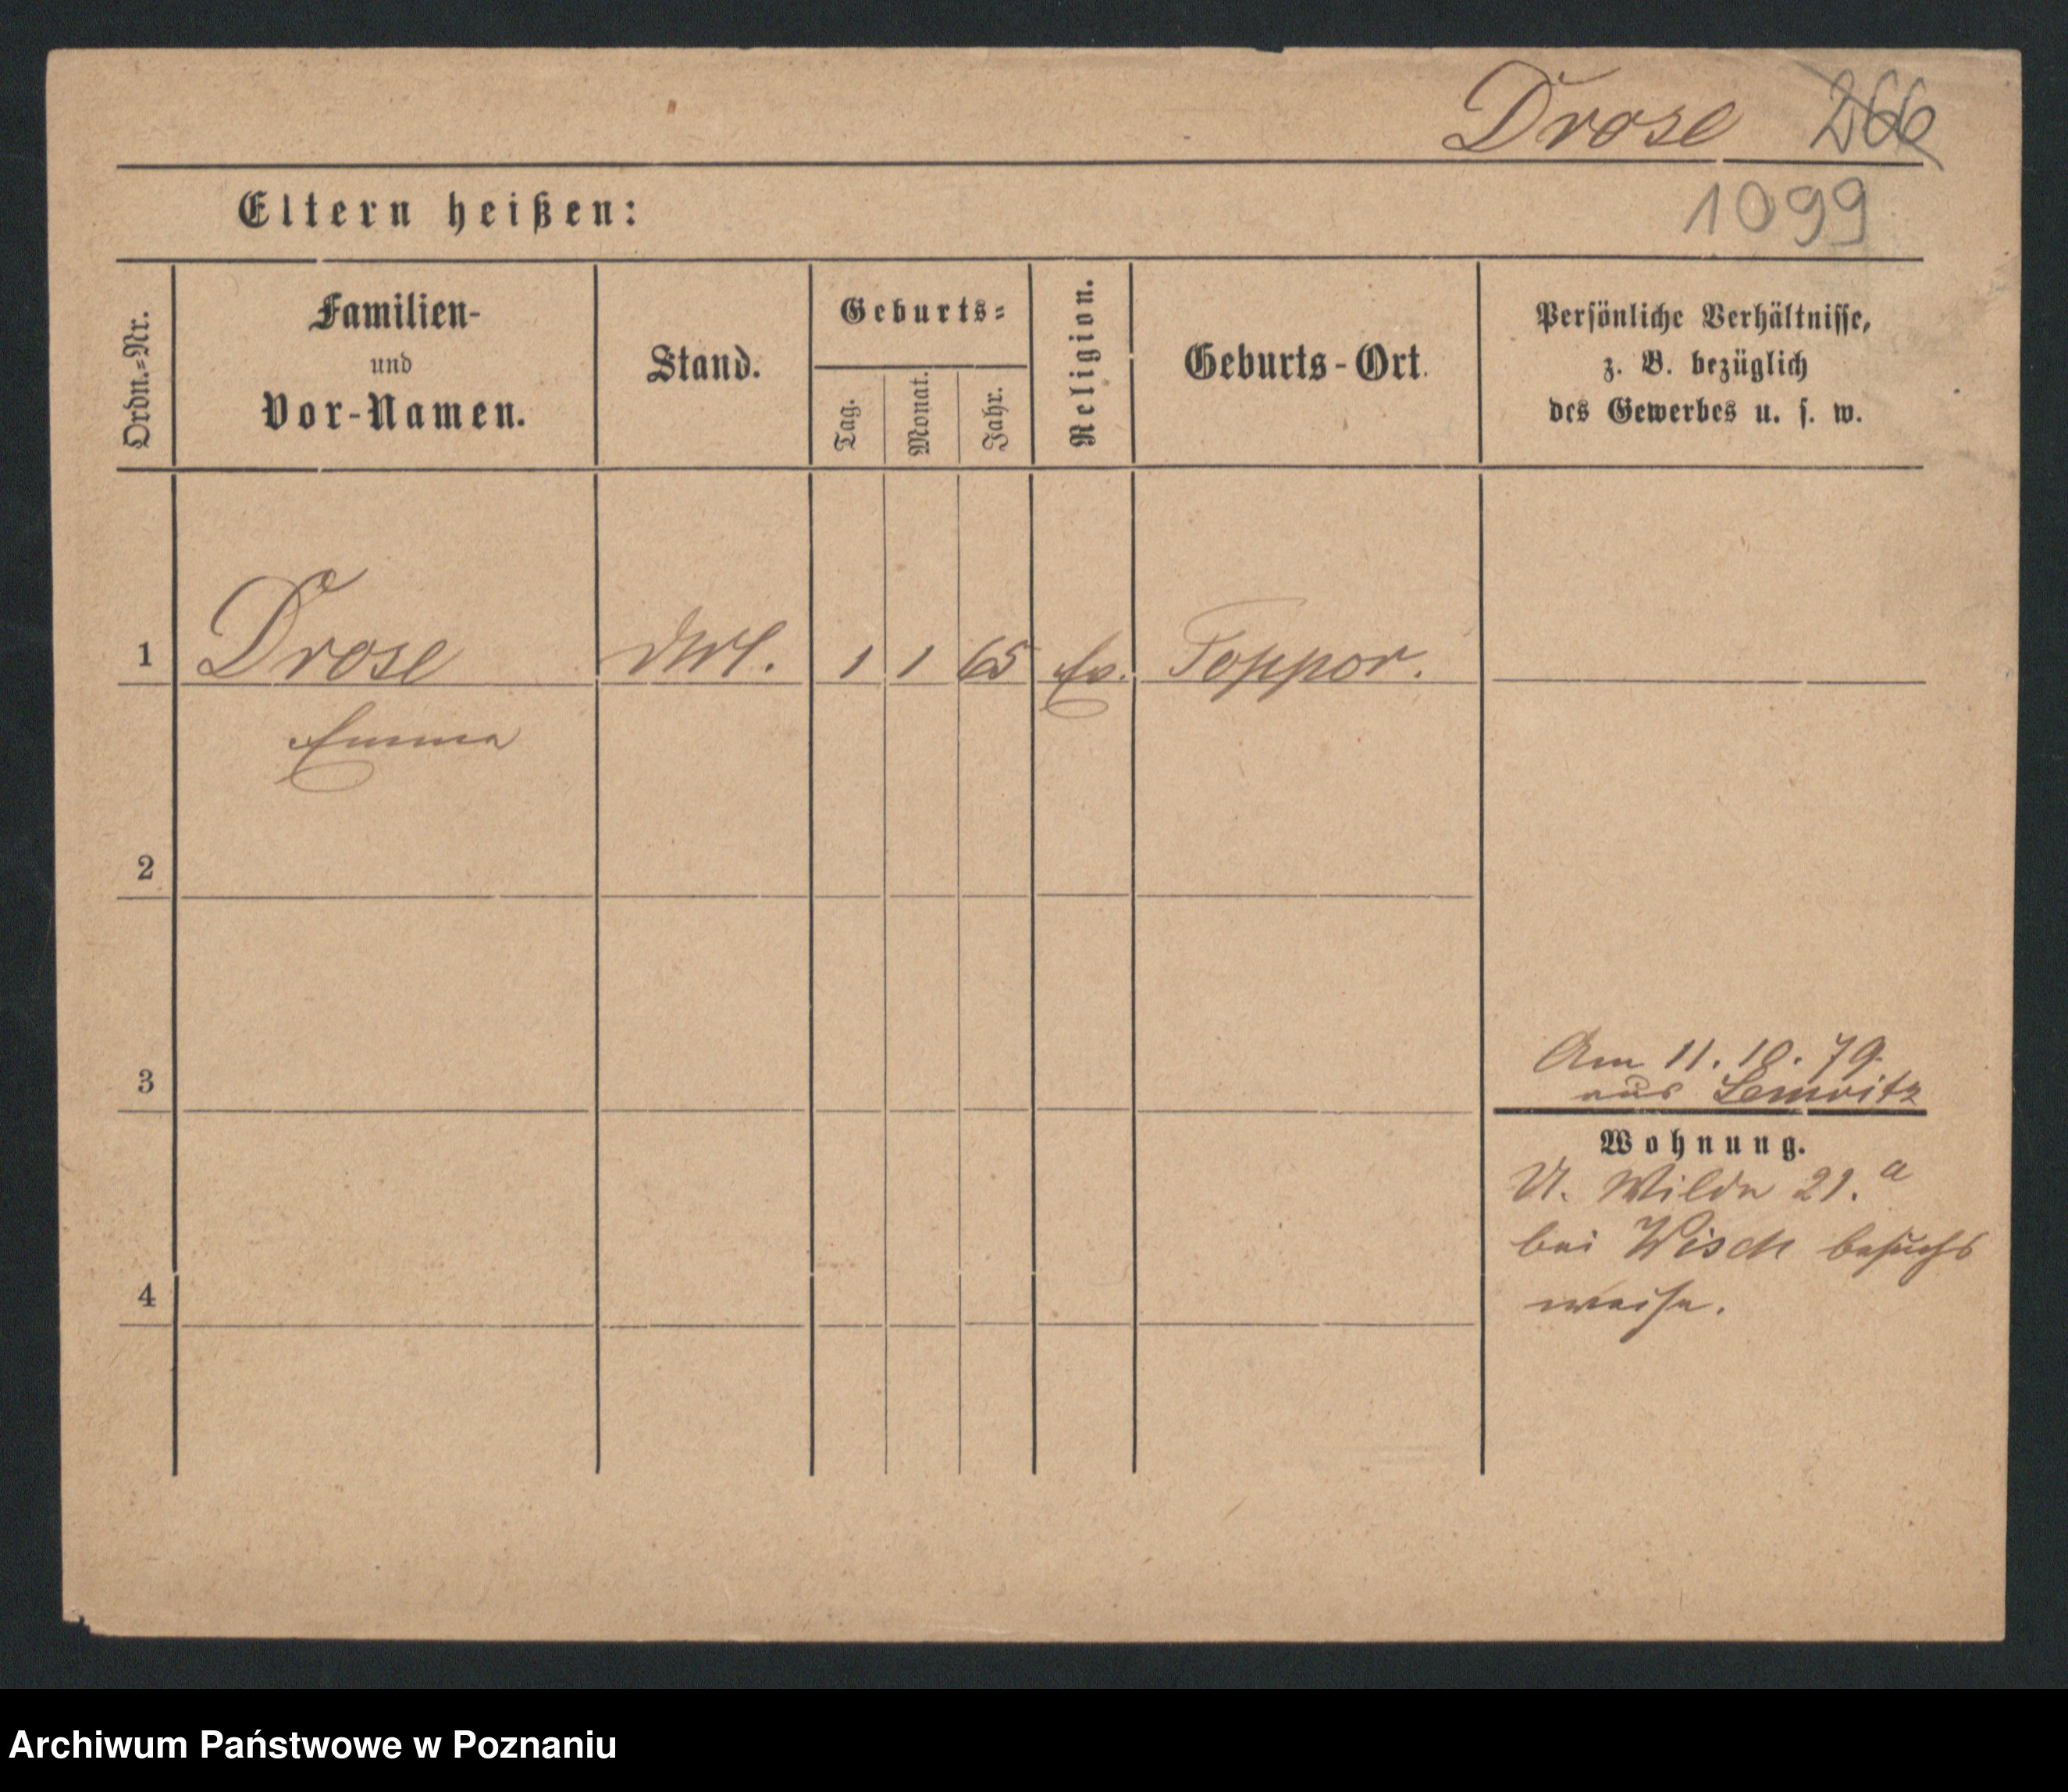 Drose 266
1099
Eltern heißen:
Ordn.=Nr.
Familien-
und
Vor-Namen.
Stand.
Geburts=
Tag.
Monat.
Jahr.
Religion.
Geburts-Ort.
Persönliche Verhältnisse,
z. B. bezüglich
des Gewerbes u. s. w.
1 Drose 1 1 65 Ev. Toppor.
Emma
2
3
Am 11. 10. 79.
aus
Wohnung.
U. Wilda 21. a
bei Wisch besuchs
weise.
4
Archiwum Państwowe w Poznaniu